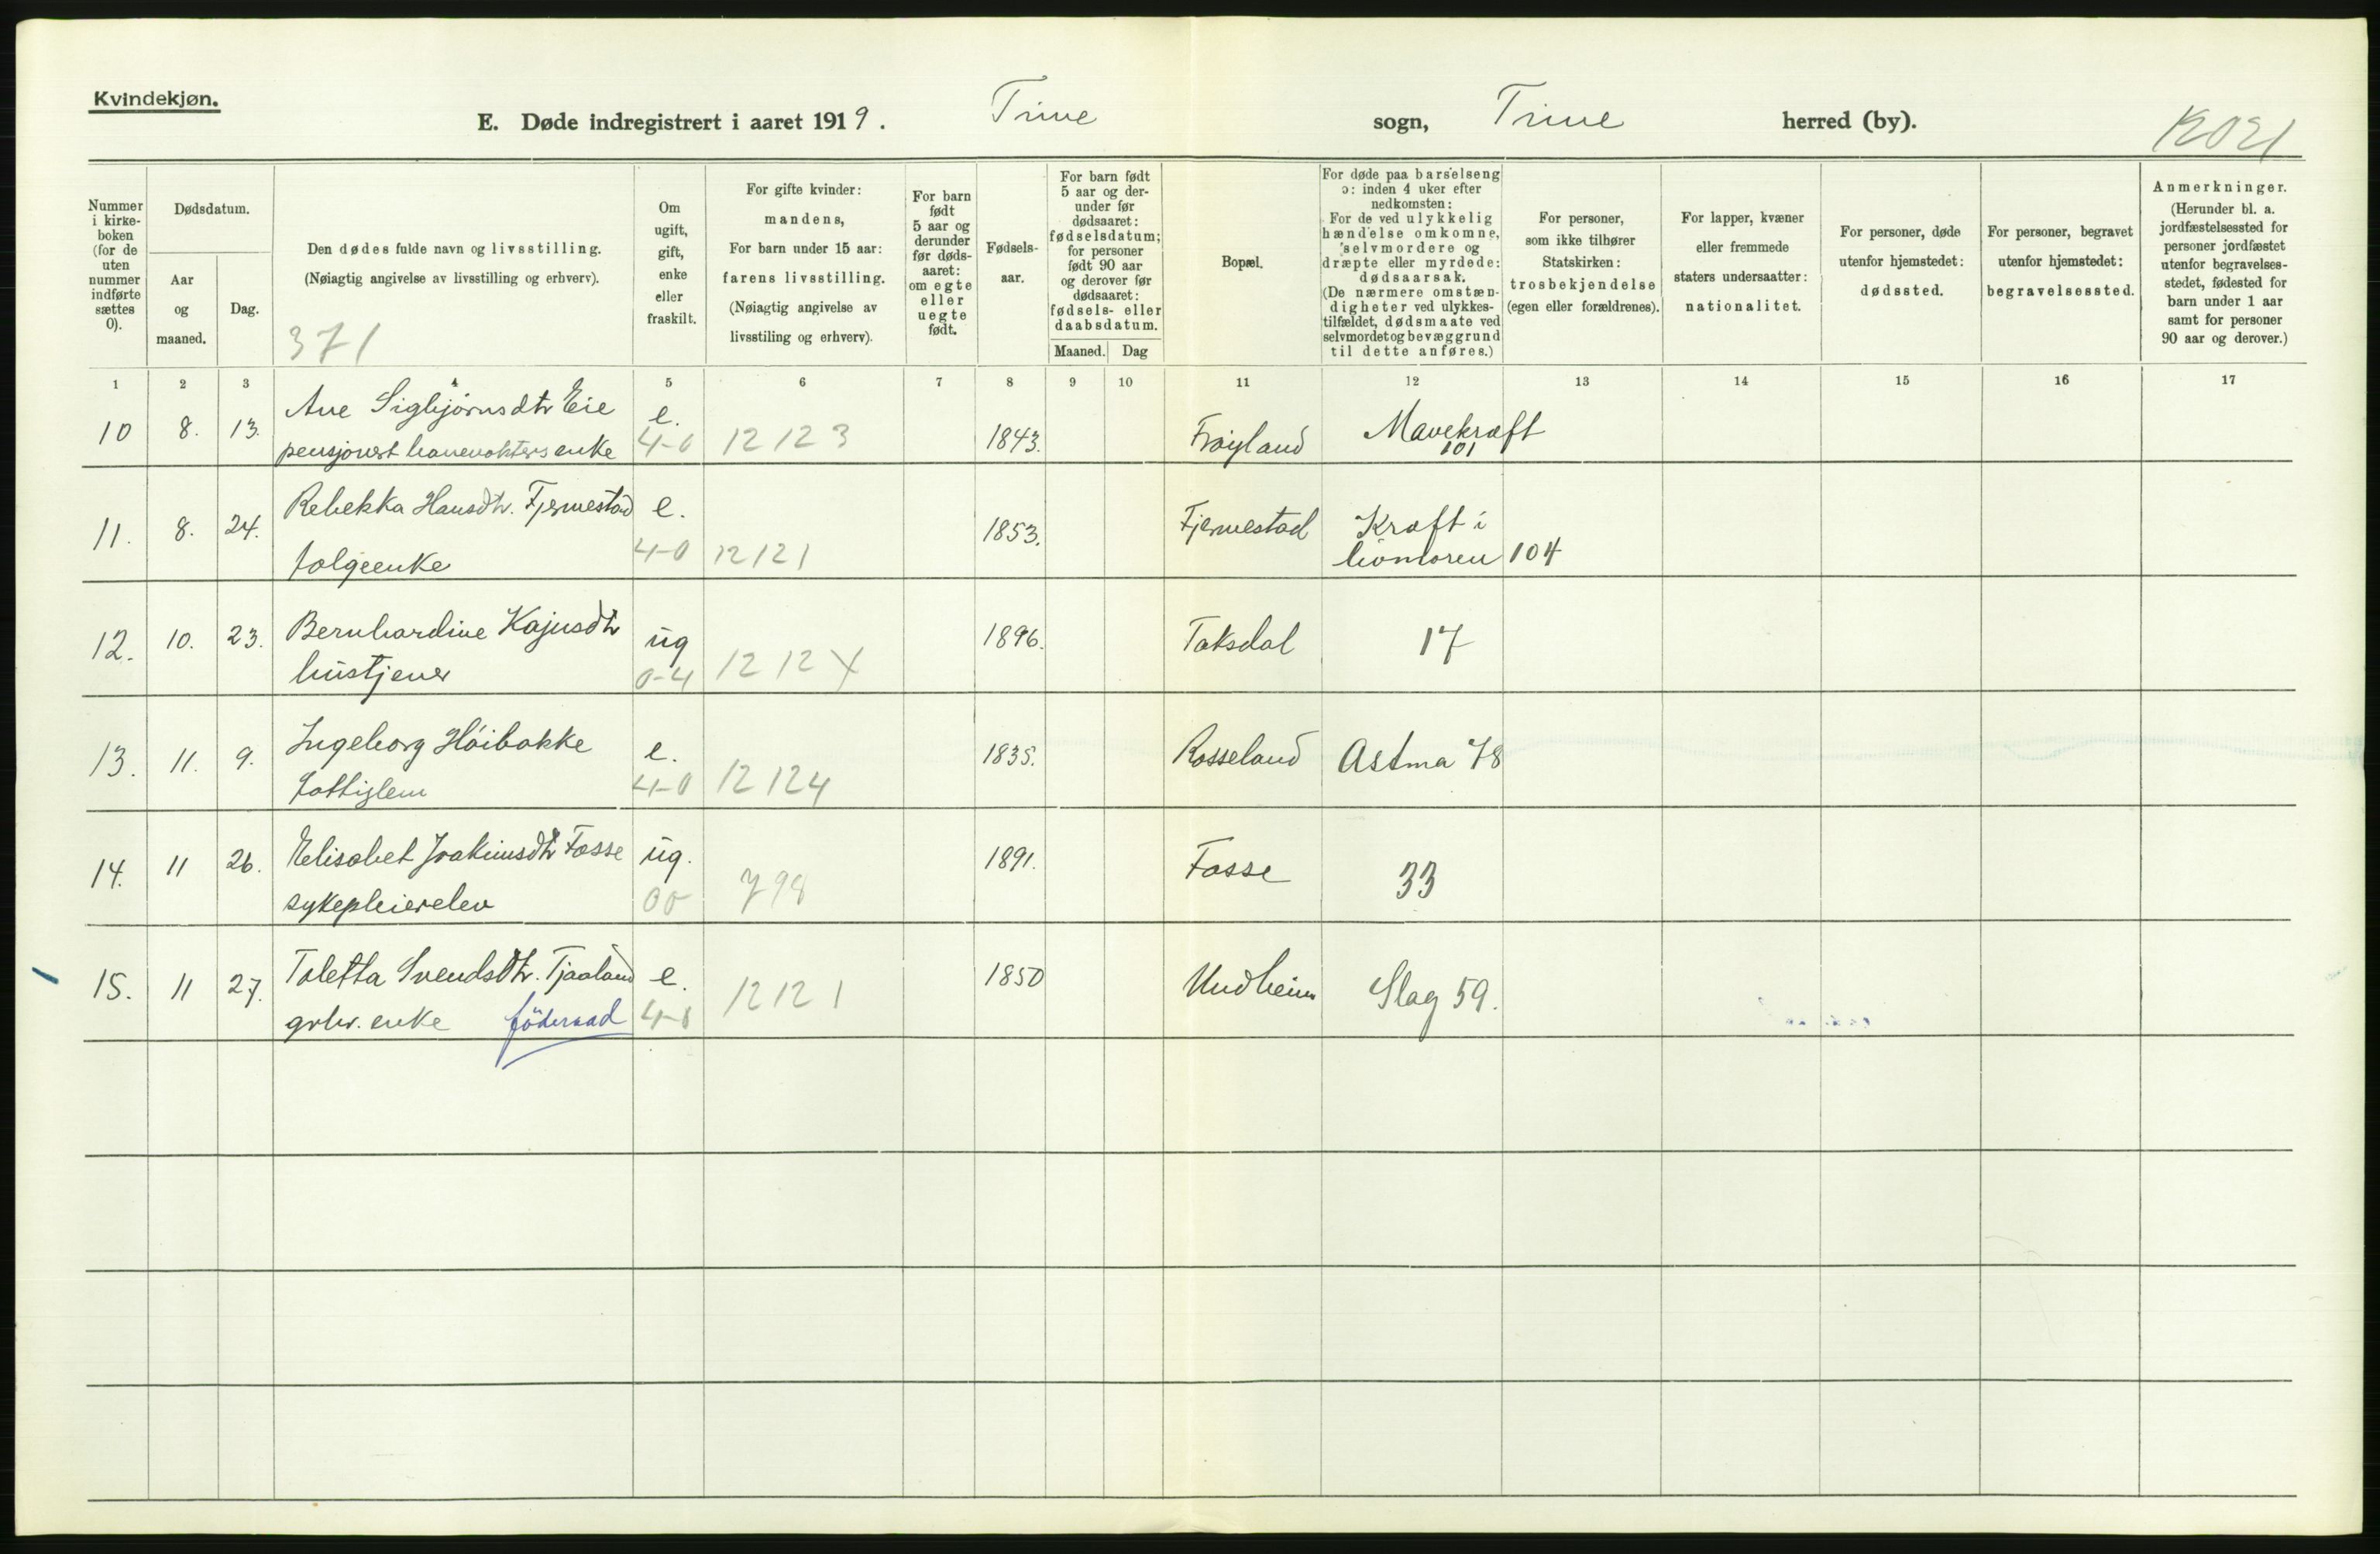 Kvindekjøn.
E. Døde indregistrert i aaret 1919. Time sogn, Time herred (by).
1121
Nummer i kirkeboken (for de uten nummer indførte sættes 0).
Dødsdatum.
Aar og maaned.
Dag.
Den dødes fulde navn og livsstilling.
(Nøiagtig angivelse av livsstilling og erhverv).
371
Om ugift, gift, enke eller fraskilt.
For gifte kvinder:
mandens,
For barn under 15 aar:
farens livsstilling.
(Nøiagtig angivelse av
livsstiling og erhverv).
For barn født 5 aar og derunder før dødsaaret: om egte eller uegte født.
Fødselsaar.
For barn født 5 aar og derunder før dødsaaret: fødselsdatum; for personer født 90 aar og derover før dødsaaret: fødsels- eller daabsdatum.
Maaned. Dag
Bopæl.
For døde paa barselseng ɔ: inden 4 uker efter nedkomsten:
For de ved ulykkelig hændelse omkomne, selvmordere og dræpte eller myrdede: dødsaarsak.
(De nærmere omstændigheter ved ulykkestilfældet, dødsmaate ved selvmordet og bevæggrund til dette anføres.)
For personer, som ikke tilhører Statskirken: trosbekjendelse (egen eller forældrenes).
For lapper, kvæner eller fremmede staters undersaatter: nationalitet.
For personer, døde utenfor hjemstedet: dødssted.
For personer, begravet utenfor hjemstedet: begravelsessted.
Anmerkninger.
(Herunder bl. a. jordfæstelsessted for personer jordfæstet utenfor begravelsesstedet, fødested for barn under 1 aar samt for personer 90 aar og derover.)
1 2 3 4 5 6 7 8 9 10 11 12 13 14 15 16 17
10 8. 13. Ane Sigbjørnsdtr Eie e. 1843. Frøyland Mavekræft
pensjonert banevokters enke 4-0 12 12 3 101
11. 8. 24. Rebekka Hansdtr. Fjermestad e. 1853. Fjermestad Kræft i
folgeenke 4-0 12 12 1 livmoren 104
12. 10. 23. Bernhardine Kajusdtr ug 1896. Taksdal 17
hustjener 0-4 12 12 X
13. 11. 9. Ingeborg Høibakke e. 1835. Rosseland Astma 78
fattiglem 4-0 12 124
14. 11 26. Elisabet Joakimsdtr Fosse ug. 1891. Fosse 33
sykepleierelev 00 798
15. 11 27. Toletta Svendsdtr. Tjaaland e. 1850 Undheim Slag 59.
grbr. enke föderaad 4-0 12 12 1